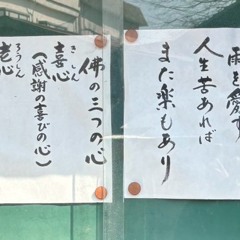 雨を愛す
人生苦あれば
また楽もあり
佛の三つの心
きしん
喜心
(感謝の喜びの心)
ろうしん
老心